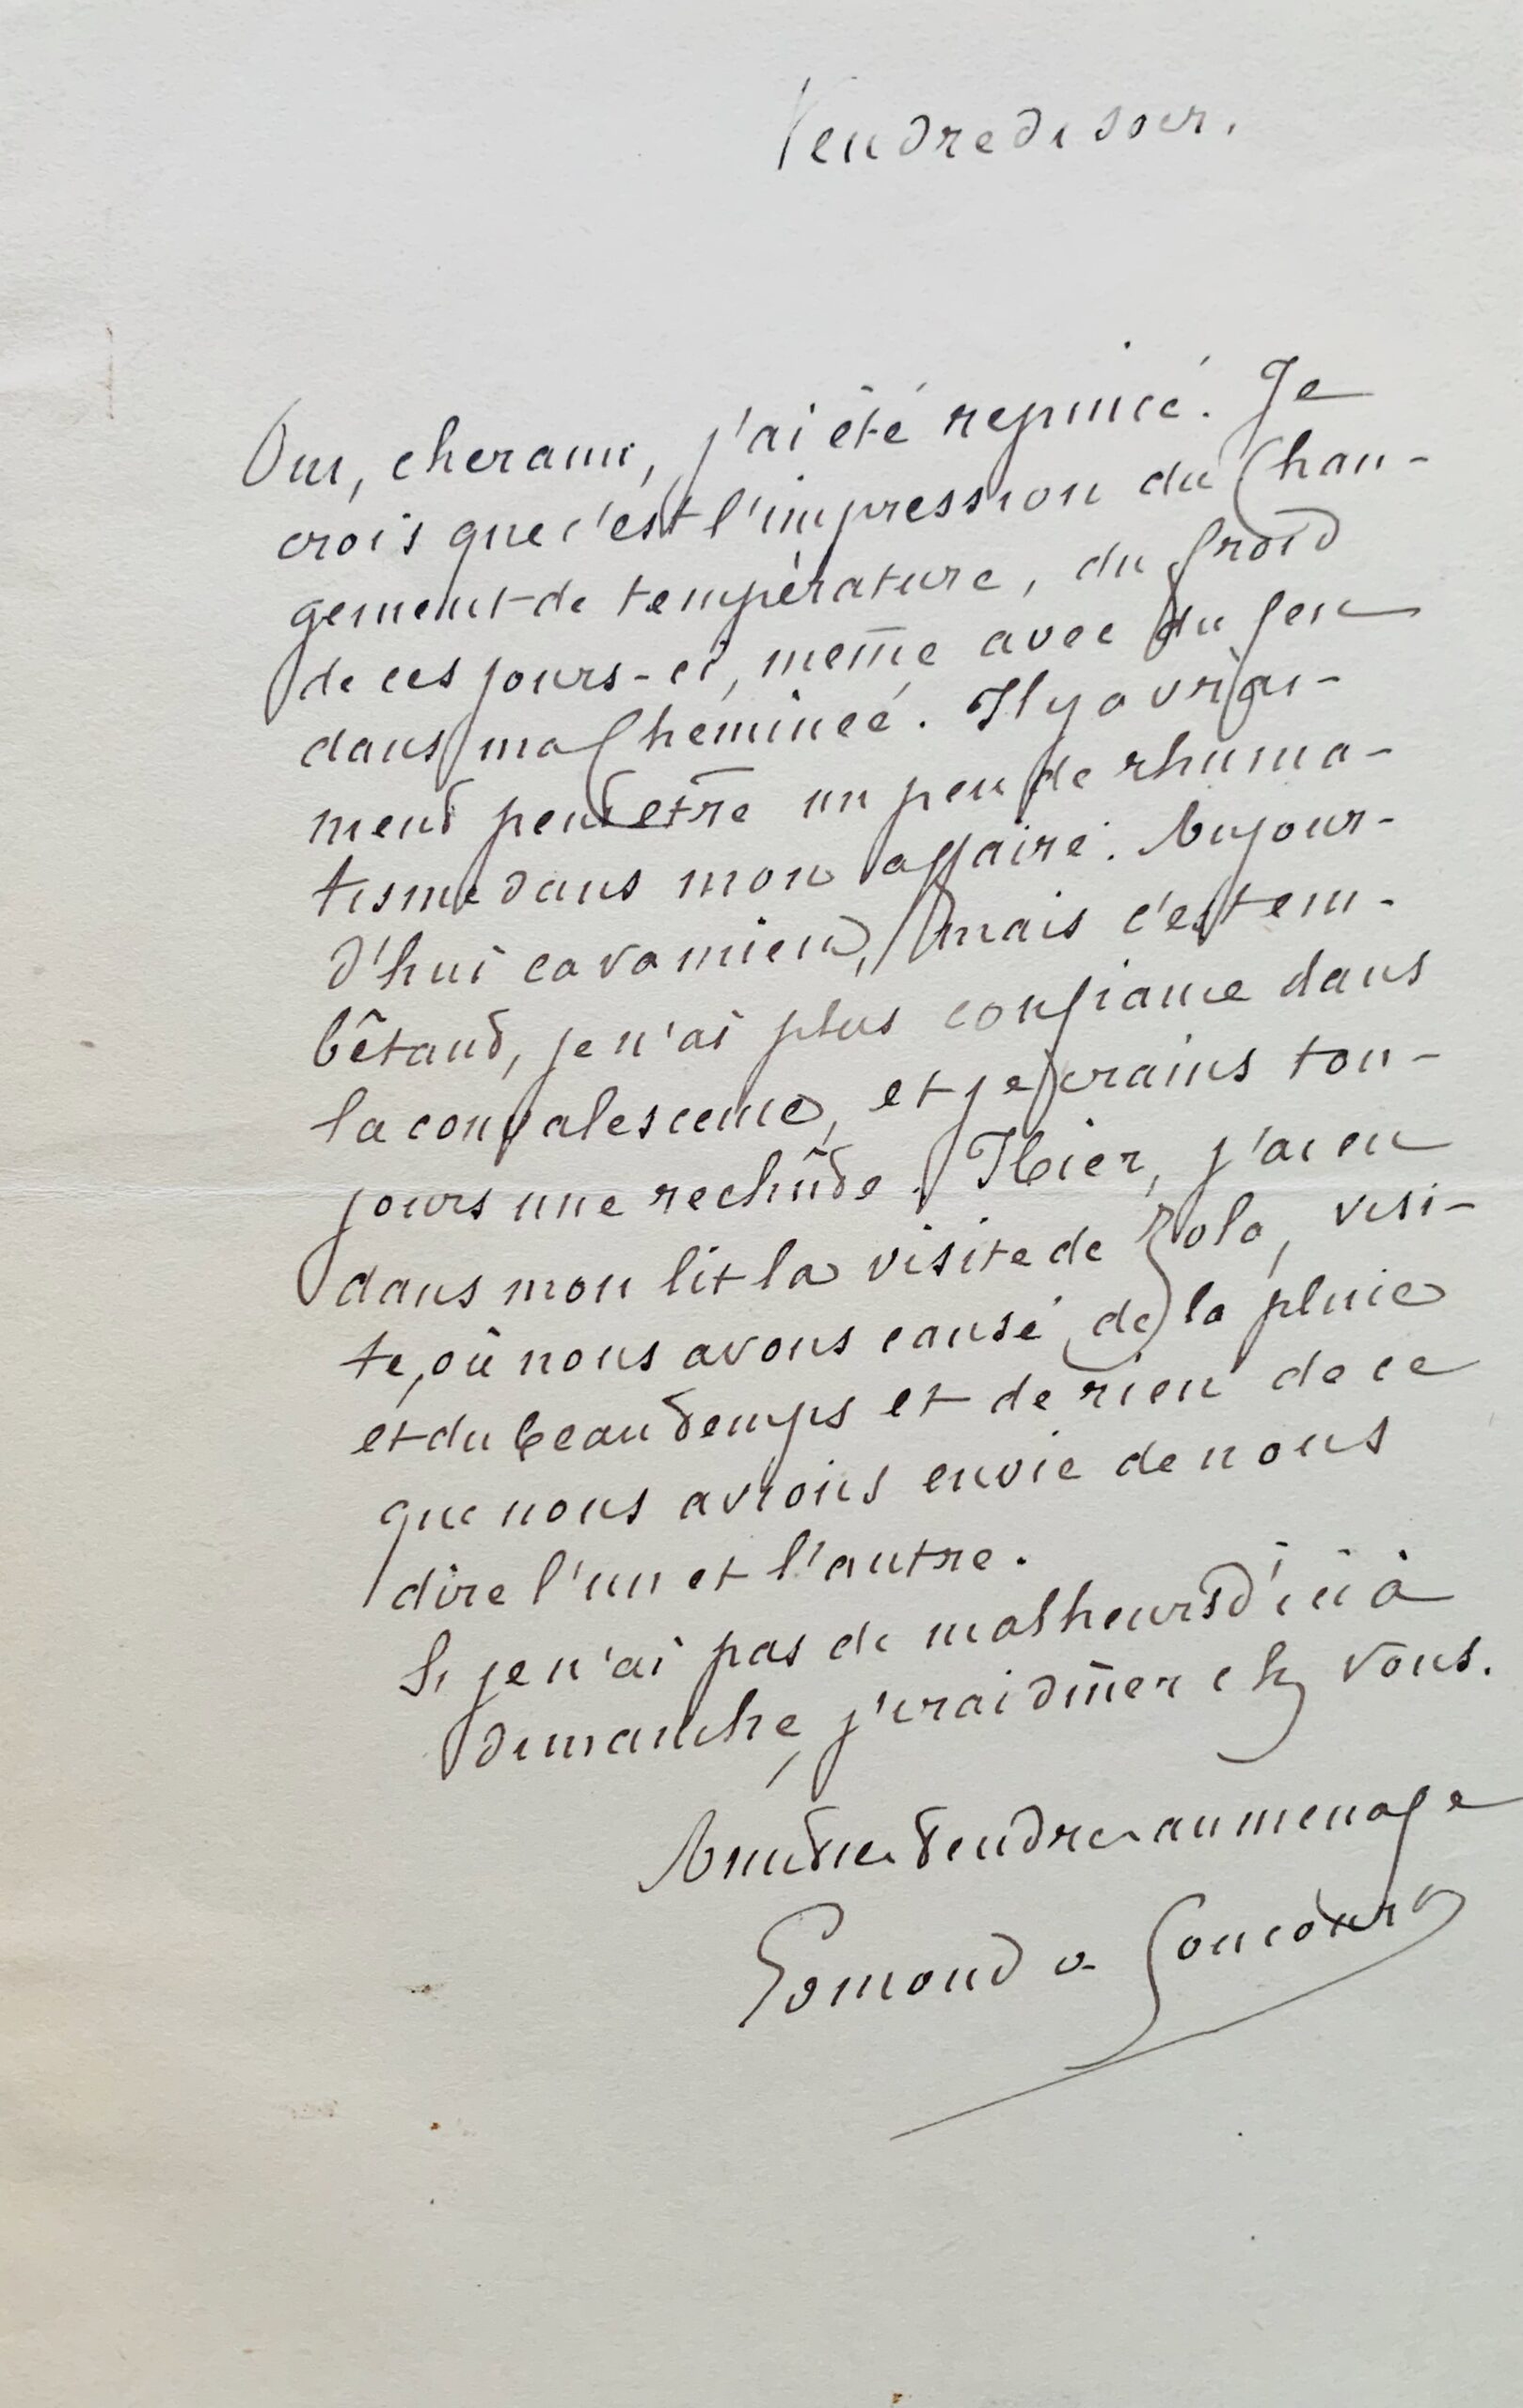 Vendredi soir.
Oui, cher ami, j'ai été repincé. Je
crois que c'est l'impression du chan-
gement de température, du froid
de ces jours-ci, même avec du feu
dans ma cheminée. Il y a vrai-
ment peut etre un peu de rhuma-
tisme dans mon affaire. Aujour-
d'hui ca va mieux, mais c'est em-
bêtant, je n'ai plus confiance dans
la convalescence, et je crains tou-
jours une rechûte. Hier, j'ai eu
dans mon lit la visite de Zola, visi-
te, où nous avons causé de la pluie
et du beau temps et de rien de ce
que nous avions envie de nous
dire l'un et l'autre.
Si je n'ai pas de malheurs d'ici à
dimanche, j'irai diner chez vous.
Amitiés tendres au menage
Edmond de Goncourt